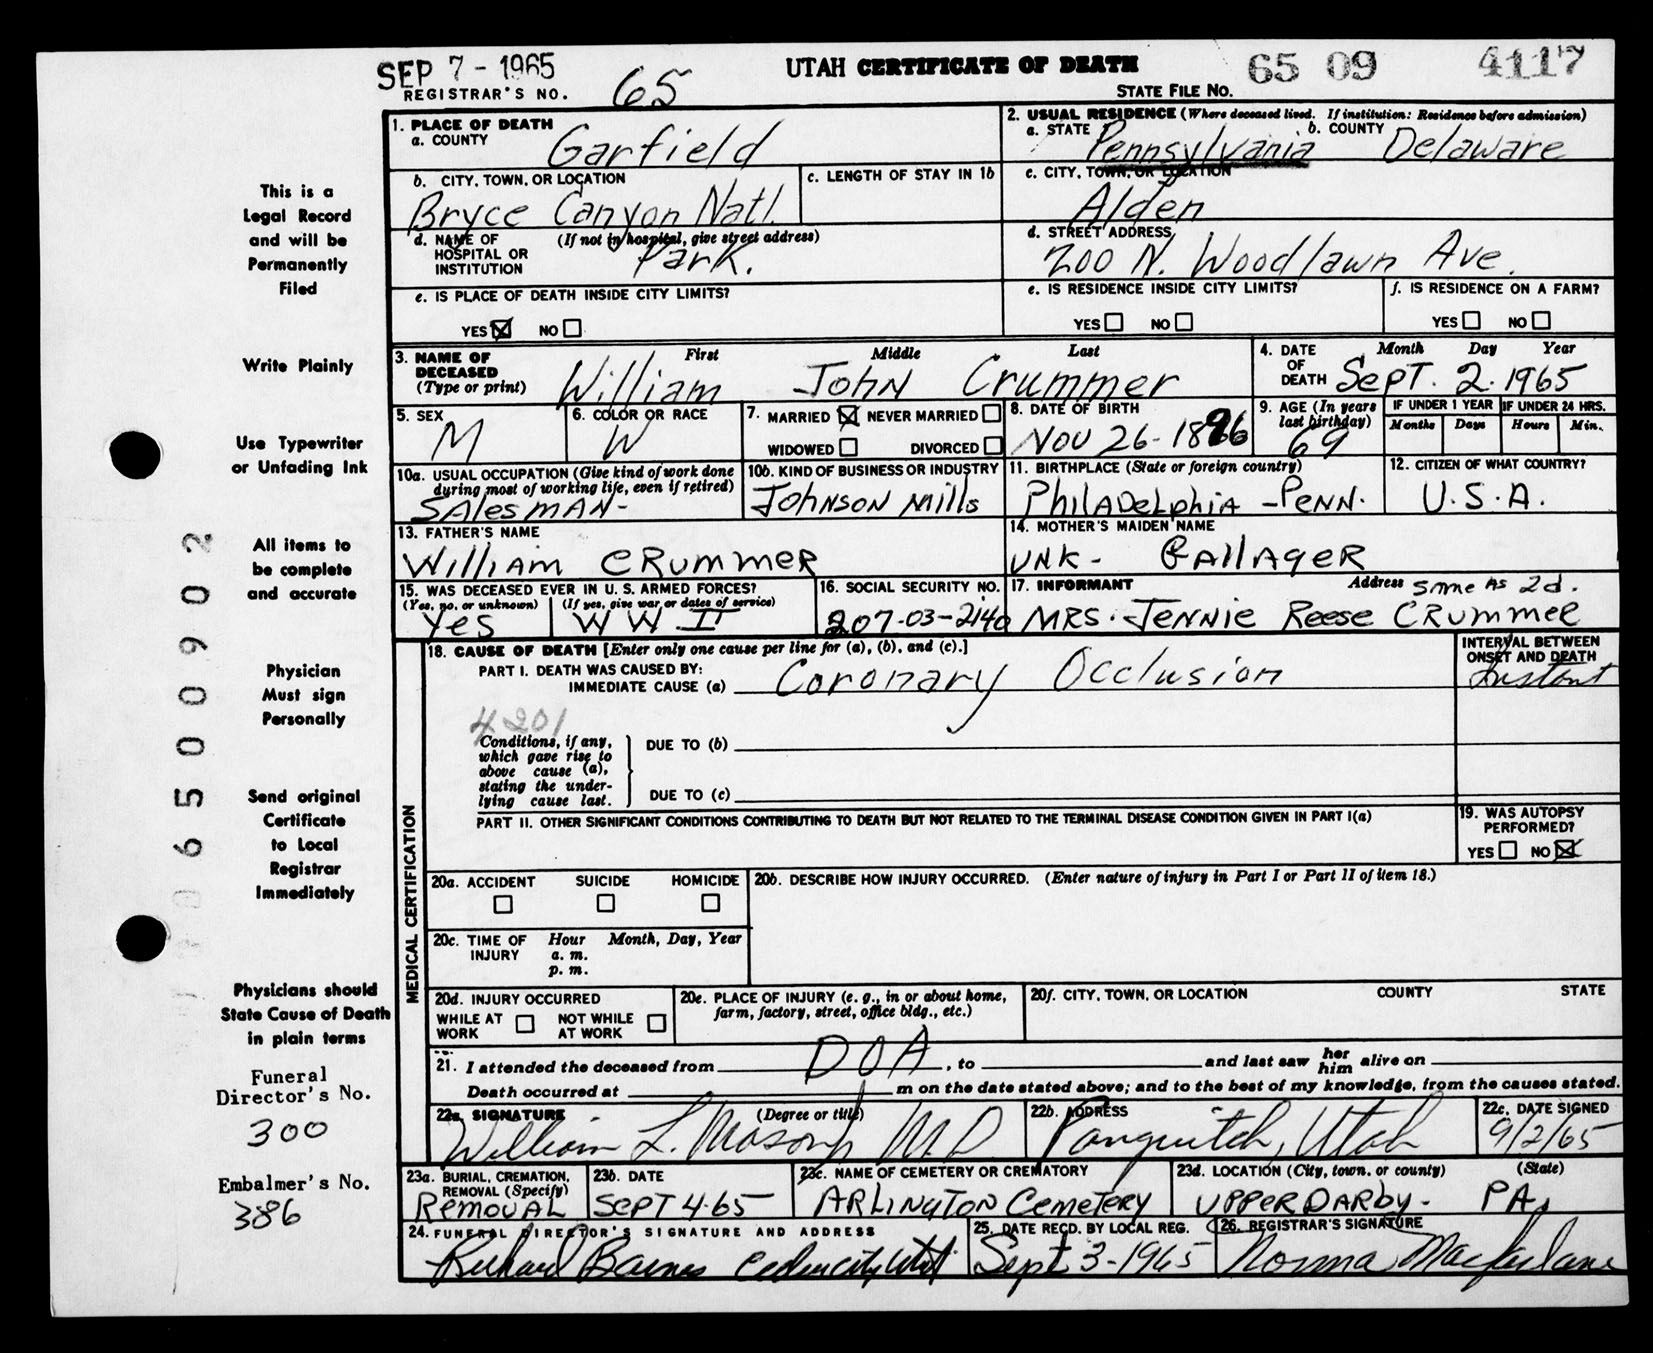 SEP 7 - 1965
REGISTRAR'S NO. 65
UTAH CERTIFICATE OF DEATH
STATE FILE NO. 65 09 4117
1. PLACE OF DEATH
a. COUNTY Garfield
2. USUAL RESIDENCE (Where deceased lived. If institution: Residence before admission)
a. STATE Pennsylvania b. COUNTY Delaware
b. CITY, TOWN, OR LOCATION
Bryce Canyon Natl.
c. LENGTH OF STAY IN 1b
c. CITY, TOWN, OR LOCATION
Alden
d. NAME OF HOSPITAL OR INSTITUTION (If not in hospital, give street address)
Park.
d. STREET ADDRESS
200 N. Woodlawn Ave.
e. IS PLACE OF DEATH INSIDE CITY LIMITS?
YES ☒ NO ☐
e. IS RESIDENCE INSIDE CITY LIMITS?
YES ☐ NO ☐
f. IS RESIDENCE ON A FARM?
YES ☐ NO ☐
3. NAME OF DECEASED (Type or print)
First Middle Last
William John Crummer
4. DATE OF DEATH
Month Day Year
Sept. 2. 1965
5. SEX
M
6. COLOR OR RACE
W
7. MARRIED ☒ NEVER MARRIED ☐
WIDOWED ☐ DIVORCED ☐
8. DATE OF BIRTH
Nov 26-1896
9. AGE (In years last birthday)
69
IF UNDER 1 YEAR
Months Days
IF UNDER 24 HRS.
Hours Min.
10a. USUAL OCCUPATION (Give kind of work done during most of working life, even if retired)
SAlesMAN-
10b. KIND OF BUSINESS OR INDUSTRY
Johnson Mills
11. BIRTHPLACE (State or foreign country)
Philadelphia - Penn.
12. CITIZEN OF WHAT COUNTRY?
U.S.A.
13. FATHER'S NAME
William CRummeR
14. MOTHER'S MAIDEN NAME
UNK- GallageR
15. WAS DECEASED EVER IN U. S. ARMED FORCES?
(Yes, no, or unknown) (If yes, give war or dates of service)
Yes WW II
16. SOCIAL SECURITY NO.
207-03-2140
17. INFORMANT Address Same As 2d.
MRS. Jennie Reese CRummeR
MEDICAL CERTIFICATION
18. CAUSE OF DEATH [Enter only one cause per line for (a), (b), and (c).]
PART I. DEATH WAS CAUSED BY:
IMMEDIATE CAUSE (a) Coronary Occlusion
INTERVAL BETWEEN ONSET AND DEATH
Instant
4201
Conditions, if any, which gave rise to above cause (a), stating the underlying cause last.
DUE TO (b)
DUE TO (c)
PART II. OTHER SIGNIFICANT CONDITIONS CONTRIBUTING TO DEATH BUT NOT RELATED TO THE TERMINAL DISEASE CONDITION GIVEN IN PART I(a)
19. WAS AUTOPSY PERFORMED?
YES ☐ NO ☒
20a. ACCIDENT SUICIDE HOMICIDE
☐ ☐ ☐
20b. DESCRIBE HOW INJURY OCCURRED. (Enter nature of injury in Part I or Part II of item 18.)
20c. TIME OF INJURY Hour Month, Day, Year
a. m.
p. m.
20d. INJURY OCCURRED
WHILE AT WORK ☐ NOT WHILE AT WORK ☐
20e. PLACE OF INJURY (e. g., in or about home, farm, factory, street, office bldg., etc.)
20f. CITY, TOWN, OR LOCATION COUNTY STATE
21. I attended the deceased from DOA, to and last saw her him alive on
Death occurred at m on the date stated above; and to the best of my knowledge, from the causes stated.
22a. SIGNATURE (Degree or title)
William L. Mason M.D.
22b. ADDRESS
Panguitch, Utah
22c. DATE SIGNED
9/2/65
23a. BURIAL, CREMATION, REMOVAL (Specify)
Removal
23b. DATE
Sept 4-65
23c. NAME OF CEMETERY OR CREMATORY
ARLINgTON Cemetery
23d. LOCATION (City, town, or county) (State)
UPPER DARby- PA.
24. FUNERAL DIRECTOR'S SIGNATURE AND ADDRESS
Richard Barnes Cedar City Utah
25. DATE RECD. BY LOCAL REG.
Sept 3-1965
26. REGISTRAR'S SIGNATURE
Norma Macfarlane
This is a
Legal Record
and will be
Permanently
Filed
Write Plainly
Use Typewriter
or Unfading Ink
All items to
be complete
and accurate
Physician
Must sign
Personally
Send original
Certificate
to Local
Registrar
Immediately
Physicians should
State Cause of Death
in plain terms
Funeral
Director's No.
300
Embalmer's No.
386
650 0902